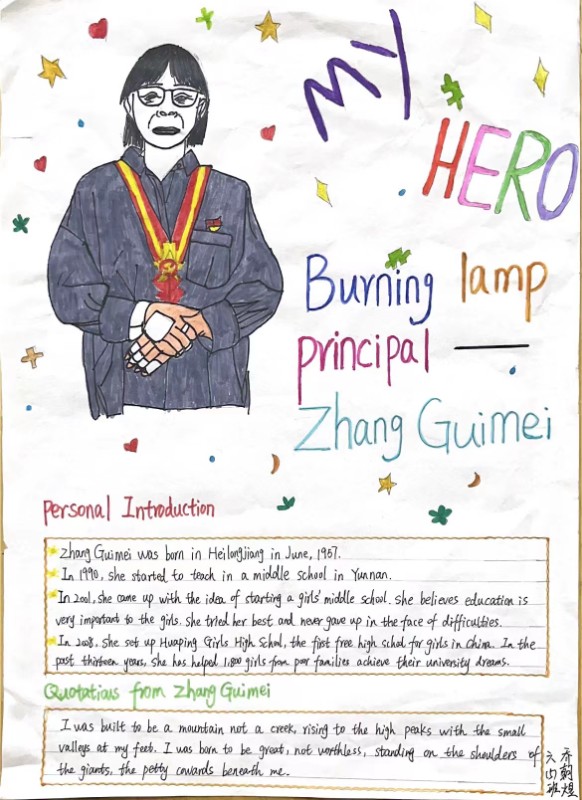 MY
HERO
Burning lamp
principal —
Zhang Guimei
Personal Introduction
Zhang Guimei was born in Heilongjiang in June, 1957.
In 1990, she started to teach in a middle school in Yunnan.
In 2001, she came up with the idea of starting a girls' middle school. She believes education is
very important to the girls. She tried her best and never gave up in the face of difficulties.
In 2008, she set up Huaping Girls High School, the first free high school for girls in China. In the
past thirteen years, she has helped 1,800 girls from poor families achieve their university dreams.
Quotations from Zhang Guimei
I was built to be a mountain not a creek, rising to the high peaks with the small
valleys at my feet. I was born to be great, not worthless, standing on the shoulders of
the giants, the petty cowards beneath me.
六(1)班